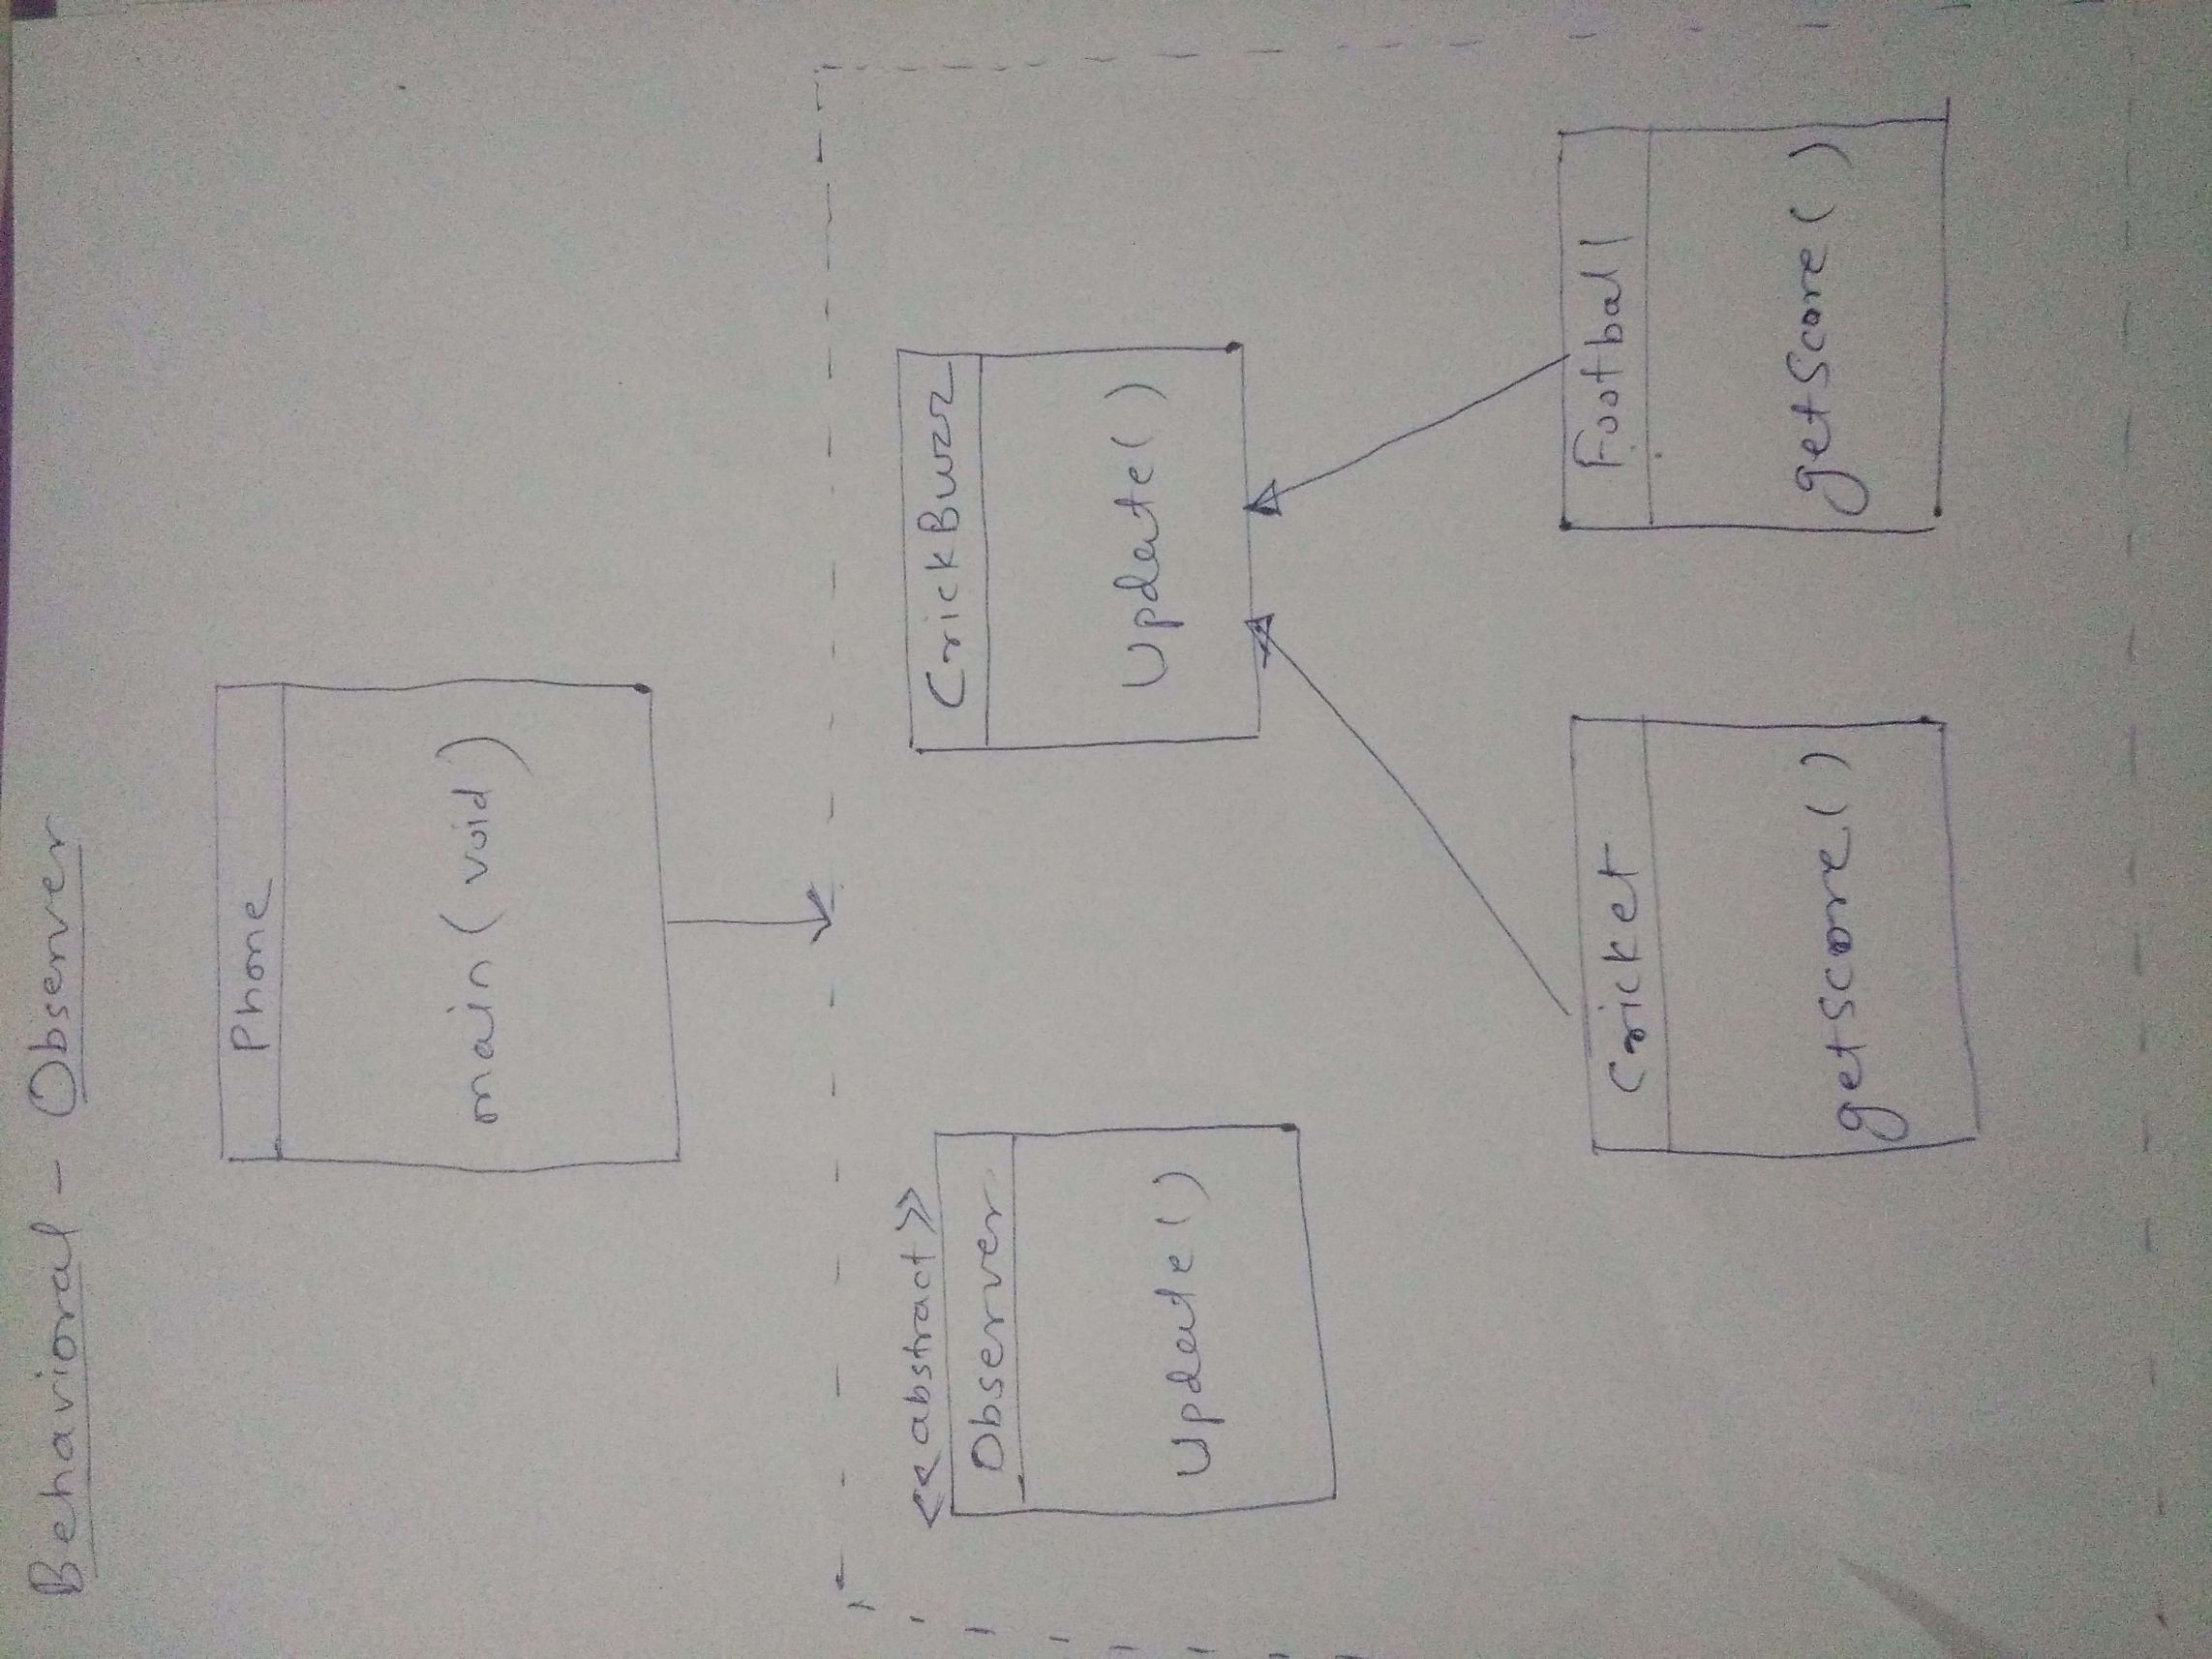 Behavioral - Observer
Phone
main (void)
<<abstract>>
Observer
Update()
CrickBuzz
Update()
Cricket
getscore()
Football
getScore()